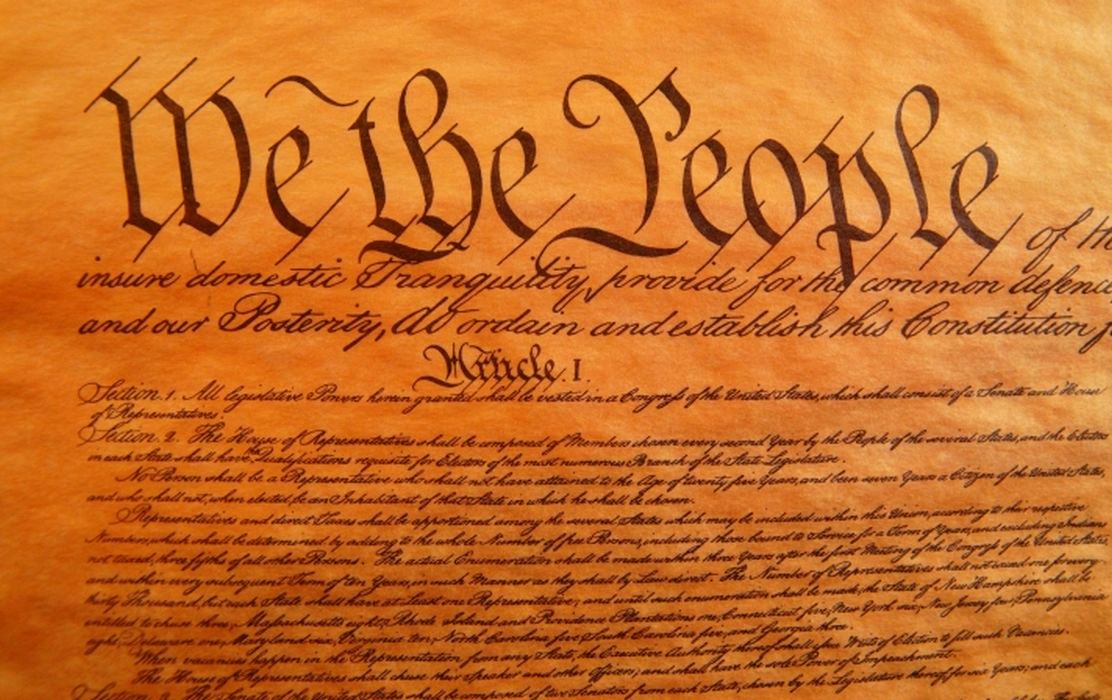 We the People of
insure domestic Tranquility, provide for the common defence
and our Posterity, do ordain and establish this Constitution
Article. I.
Section. 1. All legislative Powers herein granted shall be vested in a Congress of the United States, which shall consist of a Senate and House
of Representatives.
Section. 2. The House of Representatives shall be composed of Members chosen every second Year by the People of the several States, and the Electors
in each State shall have the Qualifications requisite for Electors of the most numerous Branch of the State Legislature.
No Person shall be a Representative who shall not have attained to the Age of twenty five Years, and been seven Years a Citizen of the United States,
and who shall not, when elected, be an Inhabitant of that State in which he shall be chosen.
Representatives and direct Taxes shall be apportioned among the several States which may be included within this Union, according to their respective
Numbers, which shall be determined by adding to the whole Number of free Persons, including those bound to Service for a Term of Years, and excluding Indians
not taxed, three fifths of all other Persons. The actual Enumeration shall be made within three Years after the first Meeting of the Congress of the United States,
and within every subsequent Term of ten Years, in such Manner as they shall by Law direct. The Number of Representatives shall not exceed one for every
thirty Thousand, but each State shall have at Least one Representative; and until such enumeration shall be made, the State of New Hampshire shall be
entitled to chuse three, Massachusetts eight, Rhode Island and Providence Plantations one, Connecticut five, New York six, New Jersey four, Pennsylvania
eight, Delaware one, Maryland six, Virginia ten, North Carolina five, South Carolina five, and Georgia three.
When vacancies happen in the Representation from any State, the Executive Authority thereof shall issue Writs of Election to fill such Vacancies.
The House of Representatives shall chuse their Speaker and other Officers; and shall have the sole Power of Impeachment.
Section. 3. The Senate of the United States shall be composed of two Senators from each State, chosen by the Legislature thereof, for six Years; and each